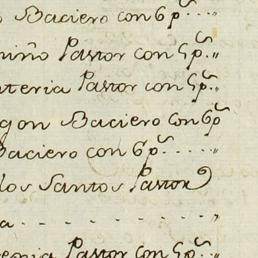 Baciero con 6 p.s ....
niño Pastor con 5 p.s ..
teria Pastor con 5 p.s ..
gon Baciero con 6 p.s
Baciero con 6 p.s .....
los Santos Pastor
a - - - - - - -
Pastor con 5 p.s ..